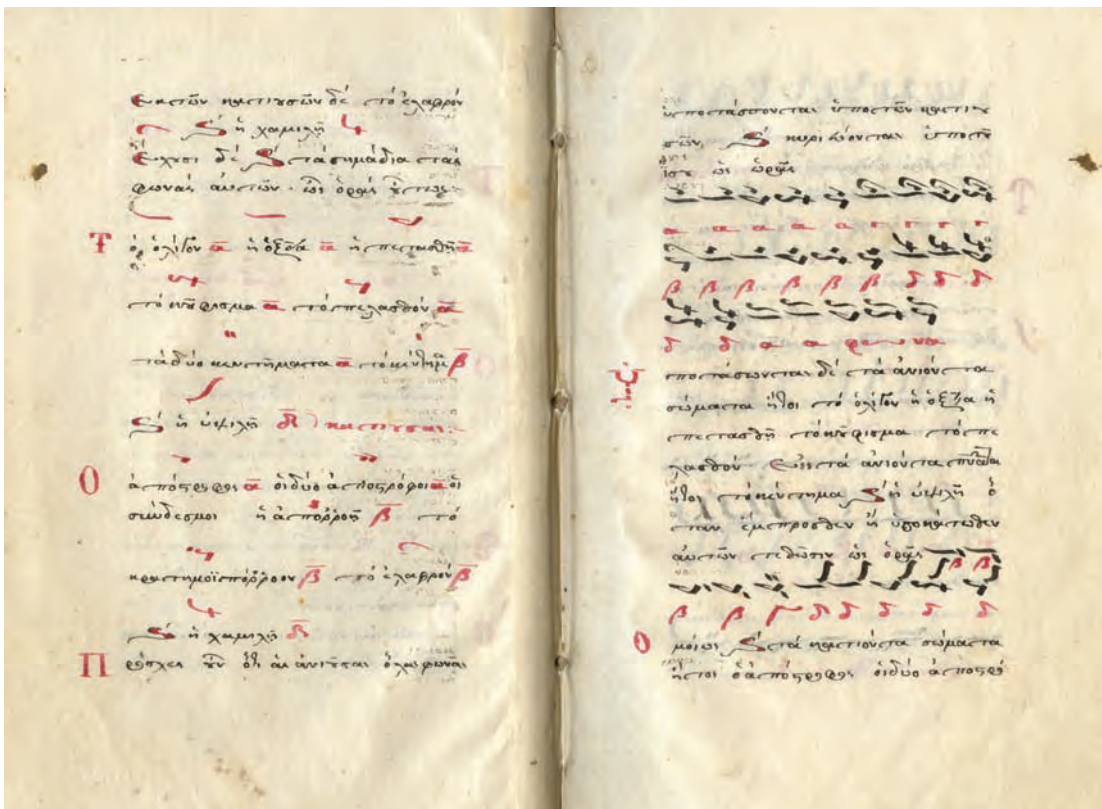 Ἐκ τῶν κατιουσῶν δέ τὸ ἐλαφρόν
Καὶ ἡ χαμιλὴ
Ἔχουσι δέ Καὶ τὰ σημάδια τὰς
φωνὰς αὐτῶν. ὡς ὁρᾷς οὕτως:
Τό ὀλίγον α ἡ ὀξεῖα α ἡ πετασθὴ α
τὸ κούφισμα α τὸ πελασθόν α
τὰ δύο κεντήματα α τὸ κέντημα β
Καὶ ἡ ὑψιλὴ δ κατιοῦσαι:
Ὁ ἀπόστροφος α οἱ δύο ἀποστρόφοι α οἱ
σύνδεσμοι ἡ ἀπορροὴ β τὸ
κρατημοϊπόρροον β τὸ ἐλαφρόν β
Καὶ ἡ χαμιλὴ δ
Πρόσχες οὖν ὅτι αἱ ἀνιοῦσαι ὅλαι φωναὶ
ὑποτάσσονται ὑπὸ τῶν κατιου
σῶν, Καὶ κυριεύονται ὑπὸ τοῦ
ἴσου ὡς ὁρᾷς
α α α α α
β β β β β β β δ δ δ
δ δ α α φωνα
Ὑποτάσσωνται δέ τὰ ἀνιόντα
σώματα ἤγουν τὸ ὀλίγον ἡ ὀξεῖα ἡ
πετασθὴ τὸ κούφισμα τὸ πε
λασθόν Εἰς τὰ ἀνιόντα πνεύματα
ἤγουν τὸ κέντημα Καὶ ἡ ὑψιλὴ ὅ
ταν ἔμπροσθεν ἢ ὑποκάτωθεν
αὐτῶν τεθῶσιν ὡς ὁρᾷς
β β
β β γ δ δ δ δ δ
Ὁμοίως Καὶ τὰ κατιόντα σώματα
ἤτοι ὁ ἀπόστροφος οἱ δύο ἀποστρό